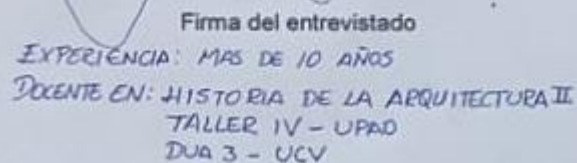 Firma del entrevistado
EXPERIENCIA: MAS DE 10 AÑOS
DOCENTE EN: HISTORIA DE LA ARQUITECTURA II
TALLER IV - UPAO
DUA 3 - UCV